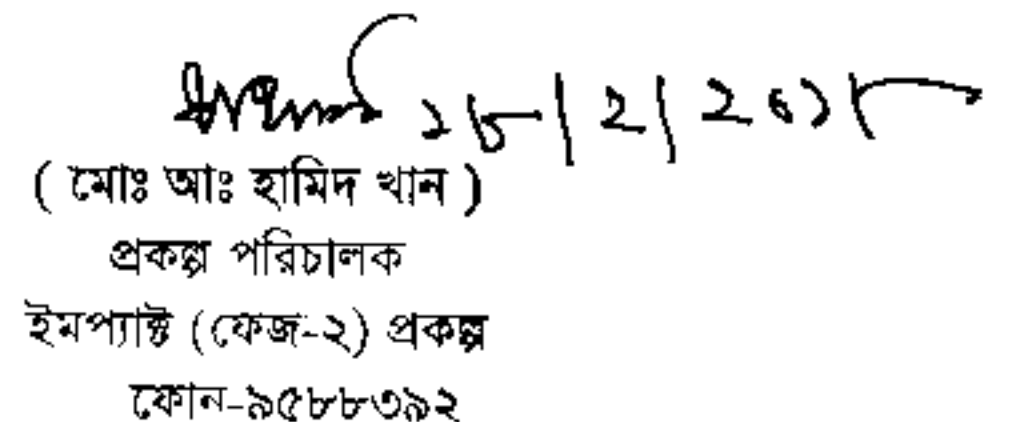 ২৮/২/২০১৮
( মোঃ আঃ হামিদ খান )
প্রকল্প পরিচালক
ইমপ্যাক্ট (ফেজ-২) প্রকল্প
ফোন-৯৫৮৮৩৯২